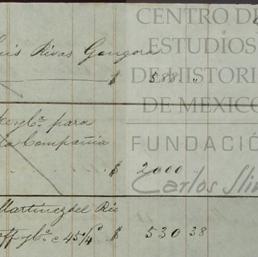 Luis Rivas Gongora
$ 588 "
para
la Compañia
$ 2000
Martinez del Rio
c 45¼ $ 530 38
CENTRO DE
ESTUDIOS
DE HISTORI
DE MEXICO
FUNDACIÓ
Carlos Slim